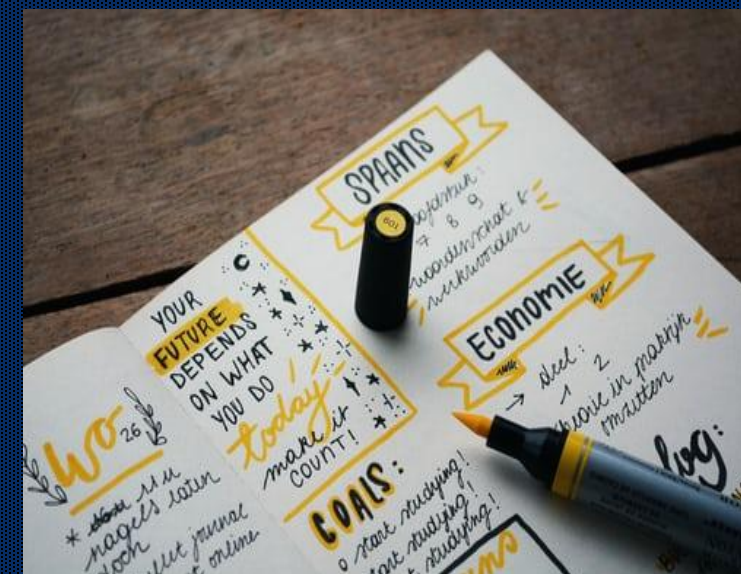 SPAANS
7 8 9
woordenschat &
werkwoorden
ECONOMIE
→ deel:
1 2
in praktijk
omzetten
YOUR
FUTURE
DEPENDS
ON WHAT
YOU DO
today
make it
COUNT!
GOALS:
o start studying!
start studying!
studying!
WO
26
nagels laten
journal
online
601